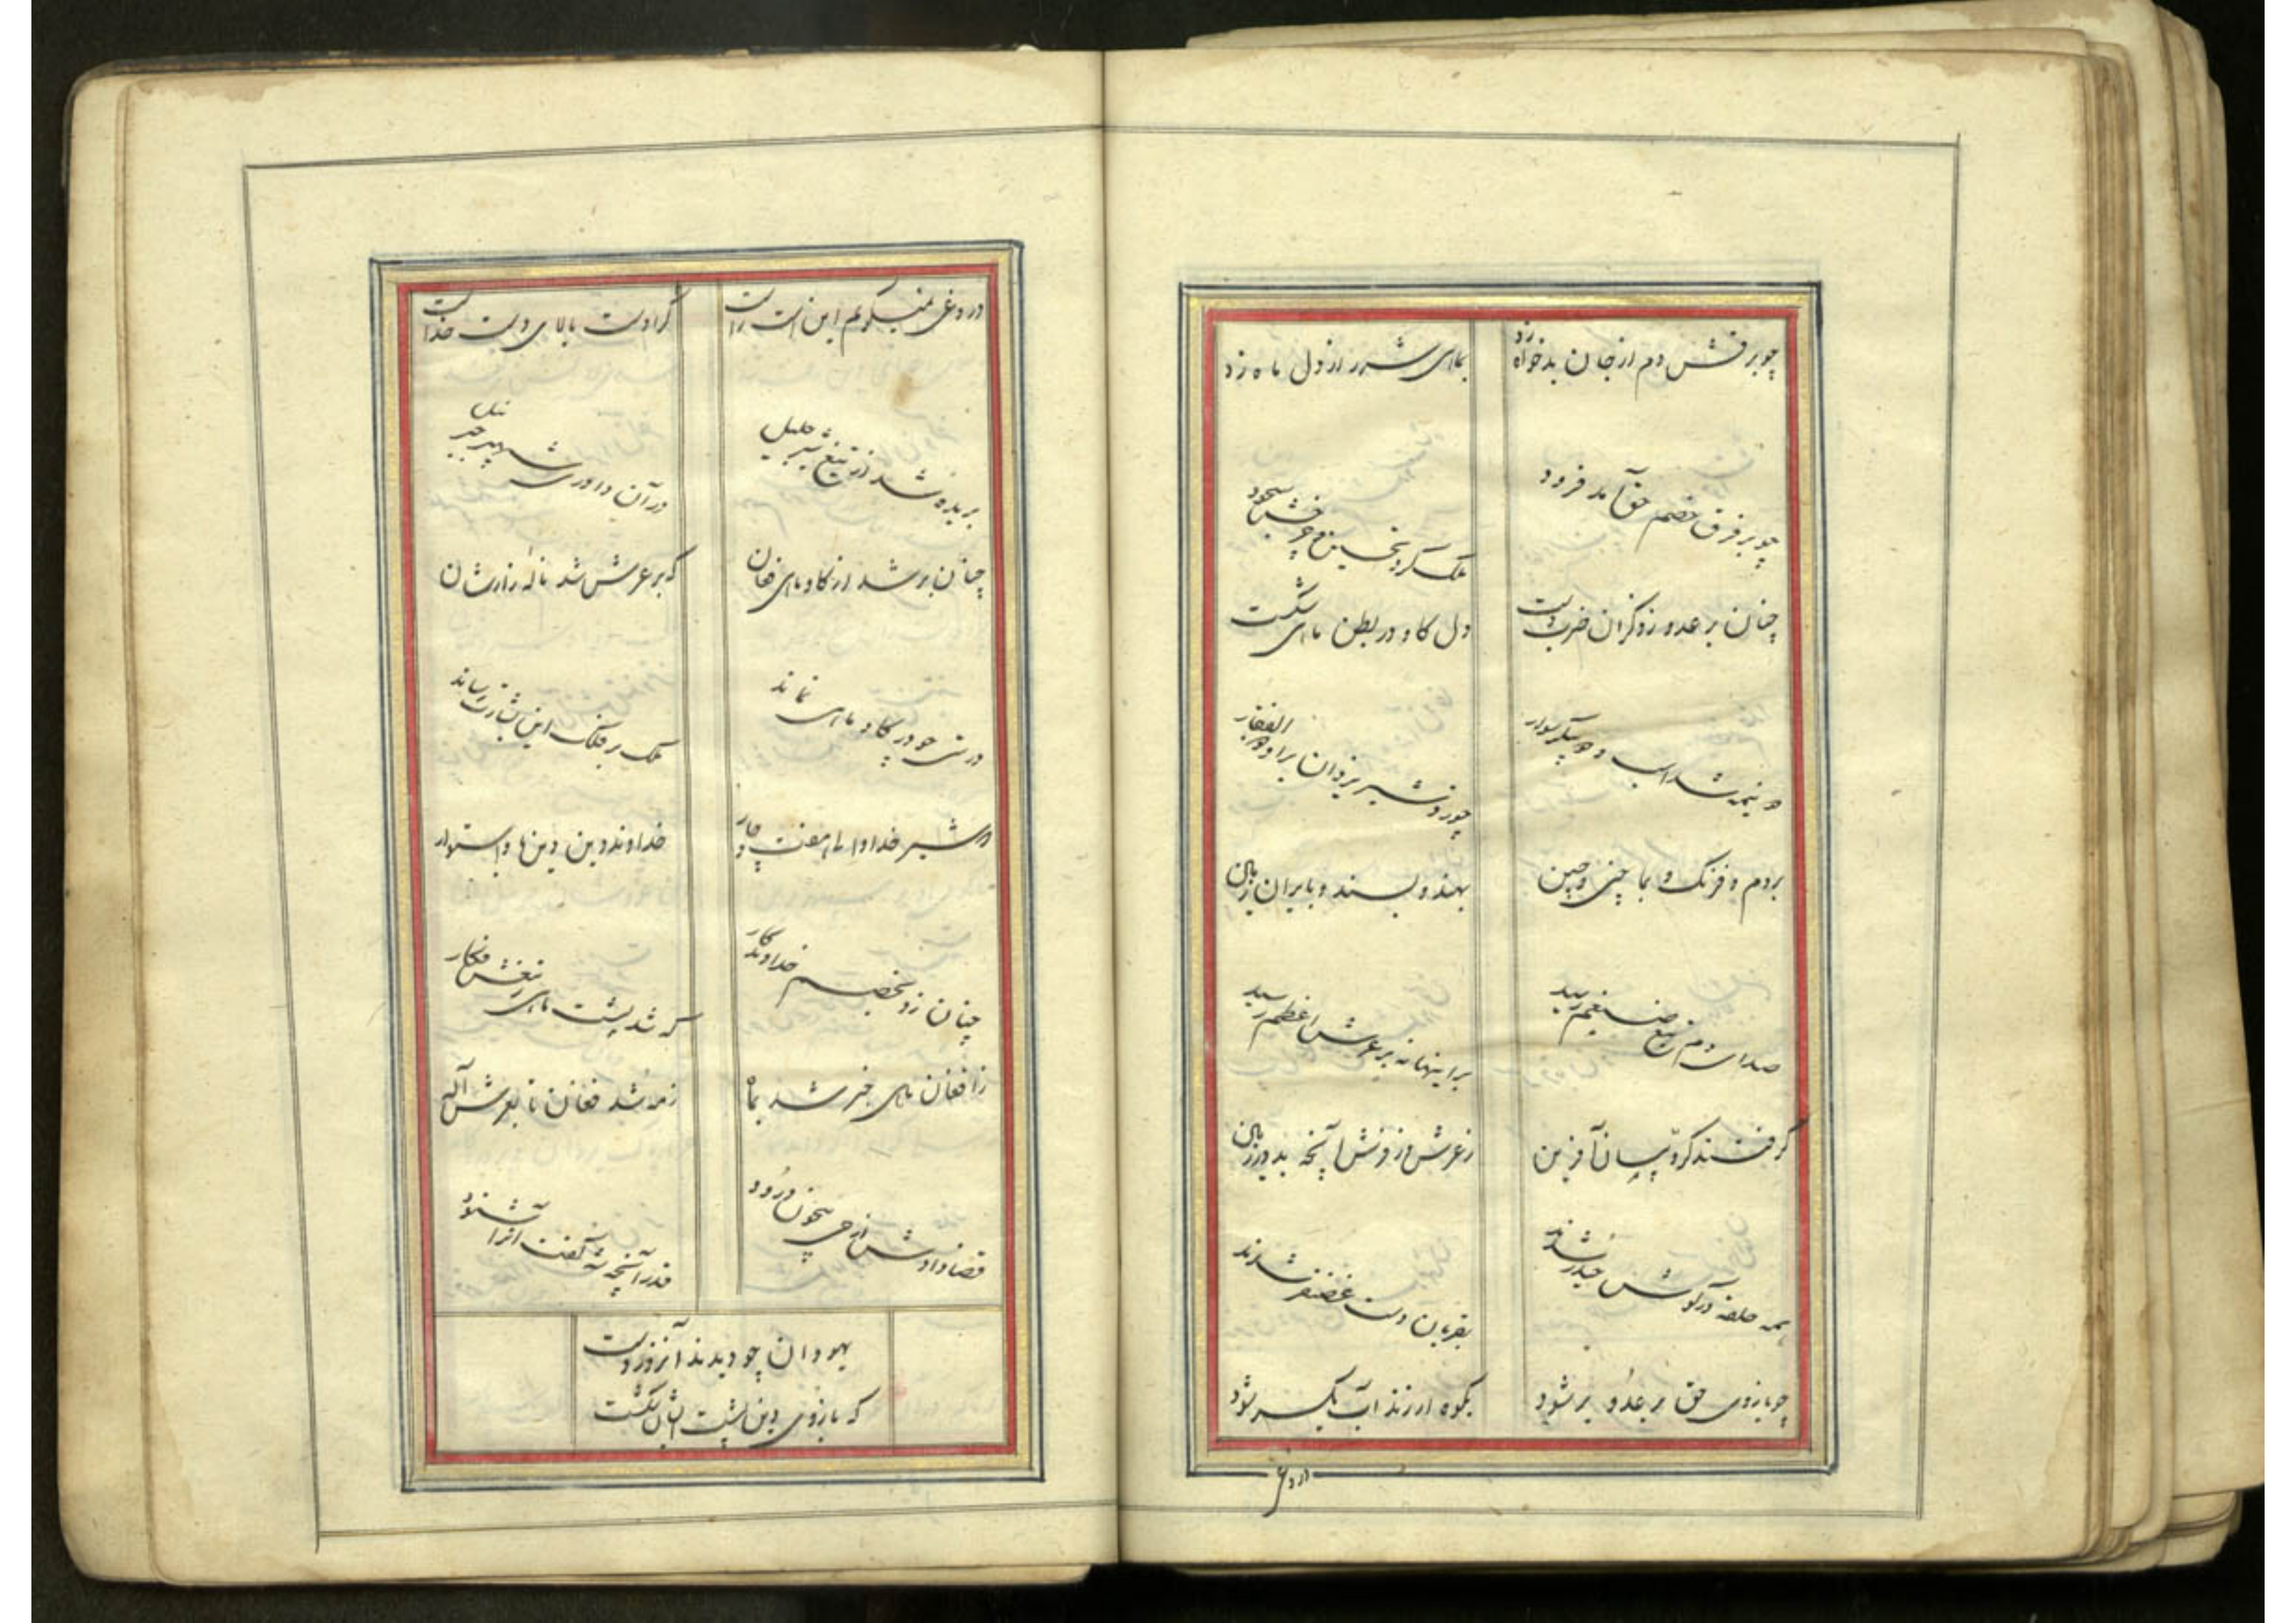 چو بر فرقش دم از جان بدخواه زد
بماهی شرر از دل ماه زد
چو بر فرق خصم حق آمد فرود
ملک کرد تحسین چو فرقش
چنان بر عدو زد گران ضرب دست
دل گاو در بطن ماهی شکست
دو نیمه شد اسب و دو پیکر سوار
چو زد شیر یزدان بر او ذوالفقار
بروم و فرنگ و بماچین و چین
بهند و بسند و بایران زمین
صدای دم تیغ ضیغم رسید
بر اینها نه بر عرش اعظم رسید
گرفتند کروبیان آفرین
ز عرش و ز فرش آنچه بد در زمین
همه حلقه در گوش حیدر شدند
بقربان دست غضنفر شدند
چو بازوی حق بر عدو بر شود
بکوه ار زند آب یکسر شود
دروغ
دروغی نمیگویم این است راست
که او دست بالای دست خداست
بریده شد از تیغ شیر جلیل
در آن داوری شهپر جبرئیل
چنان بر شد از گاو ماهی فغان
که بر عرش شد ناله زارشان
درستی چو در گاو ماهی نماند
ملک بر فلک این بشارت رساند
خداوند دین دین استوار
چنان زد بخصم خداوندگار
که شد پشت ماهی ز تیغش فکار
ز افغان ماهی خبر شد بماه
ز مه شد فغان تا بعرش اله
قضا دادش از حی بیچون درود
قدر آنچه شه گفت آنرا شنود
یهودان چو دیدند آنزور دست
که بازوی دین پشت ایشان شکست